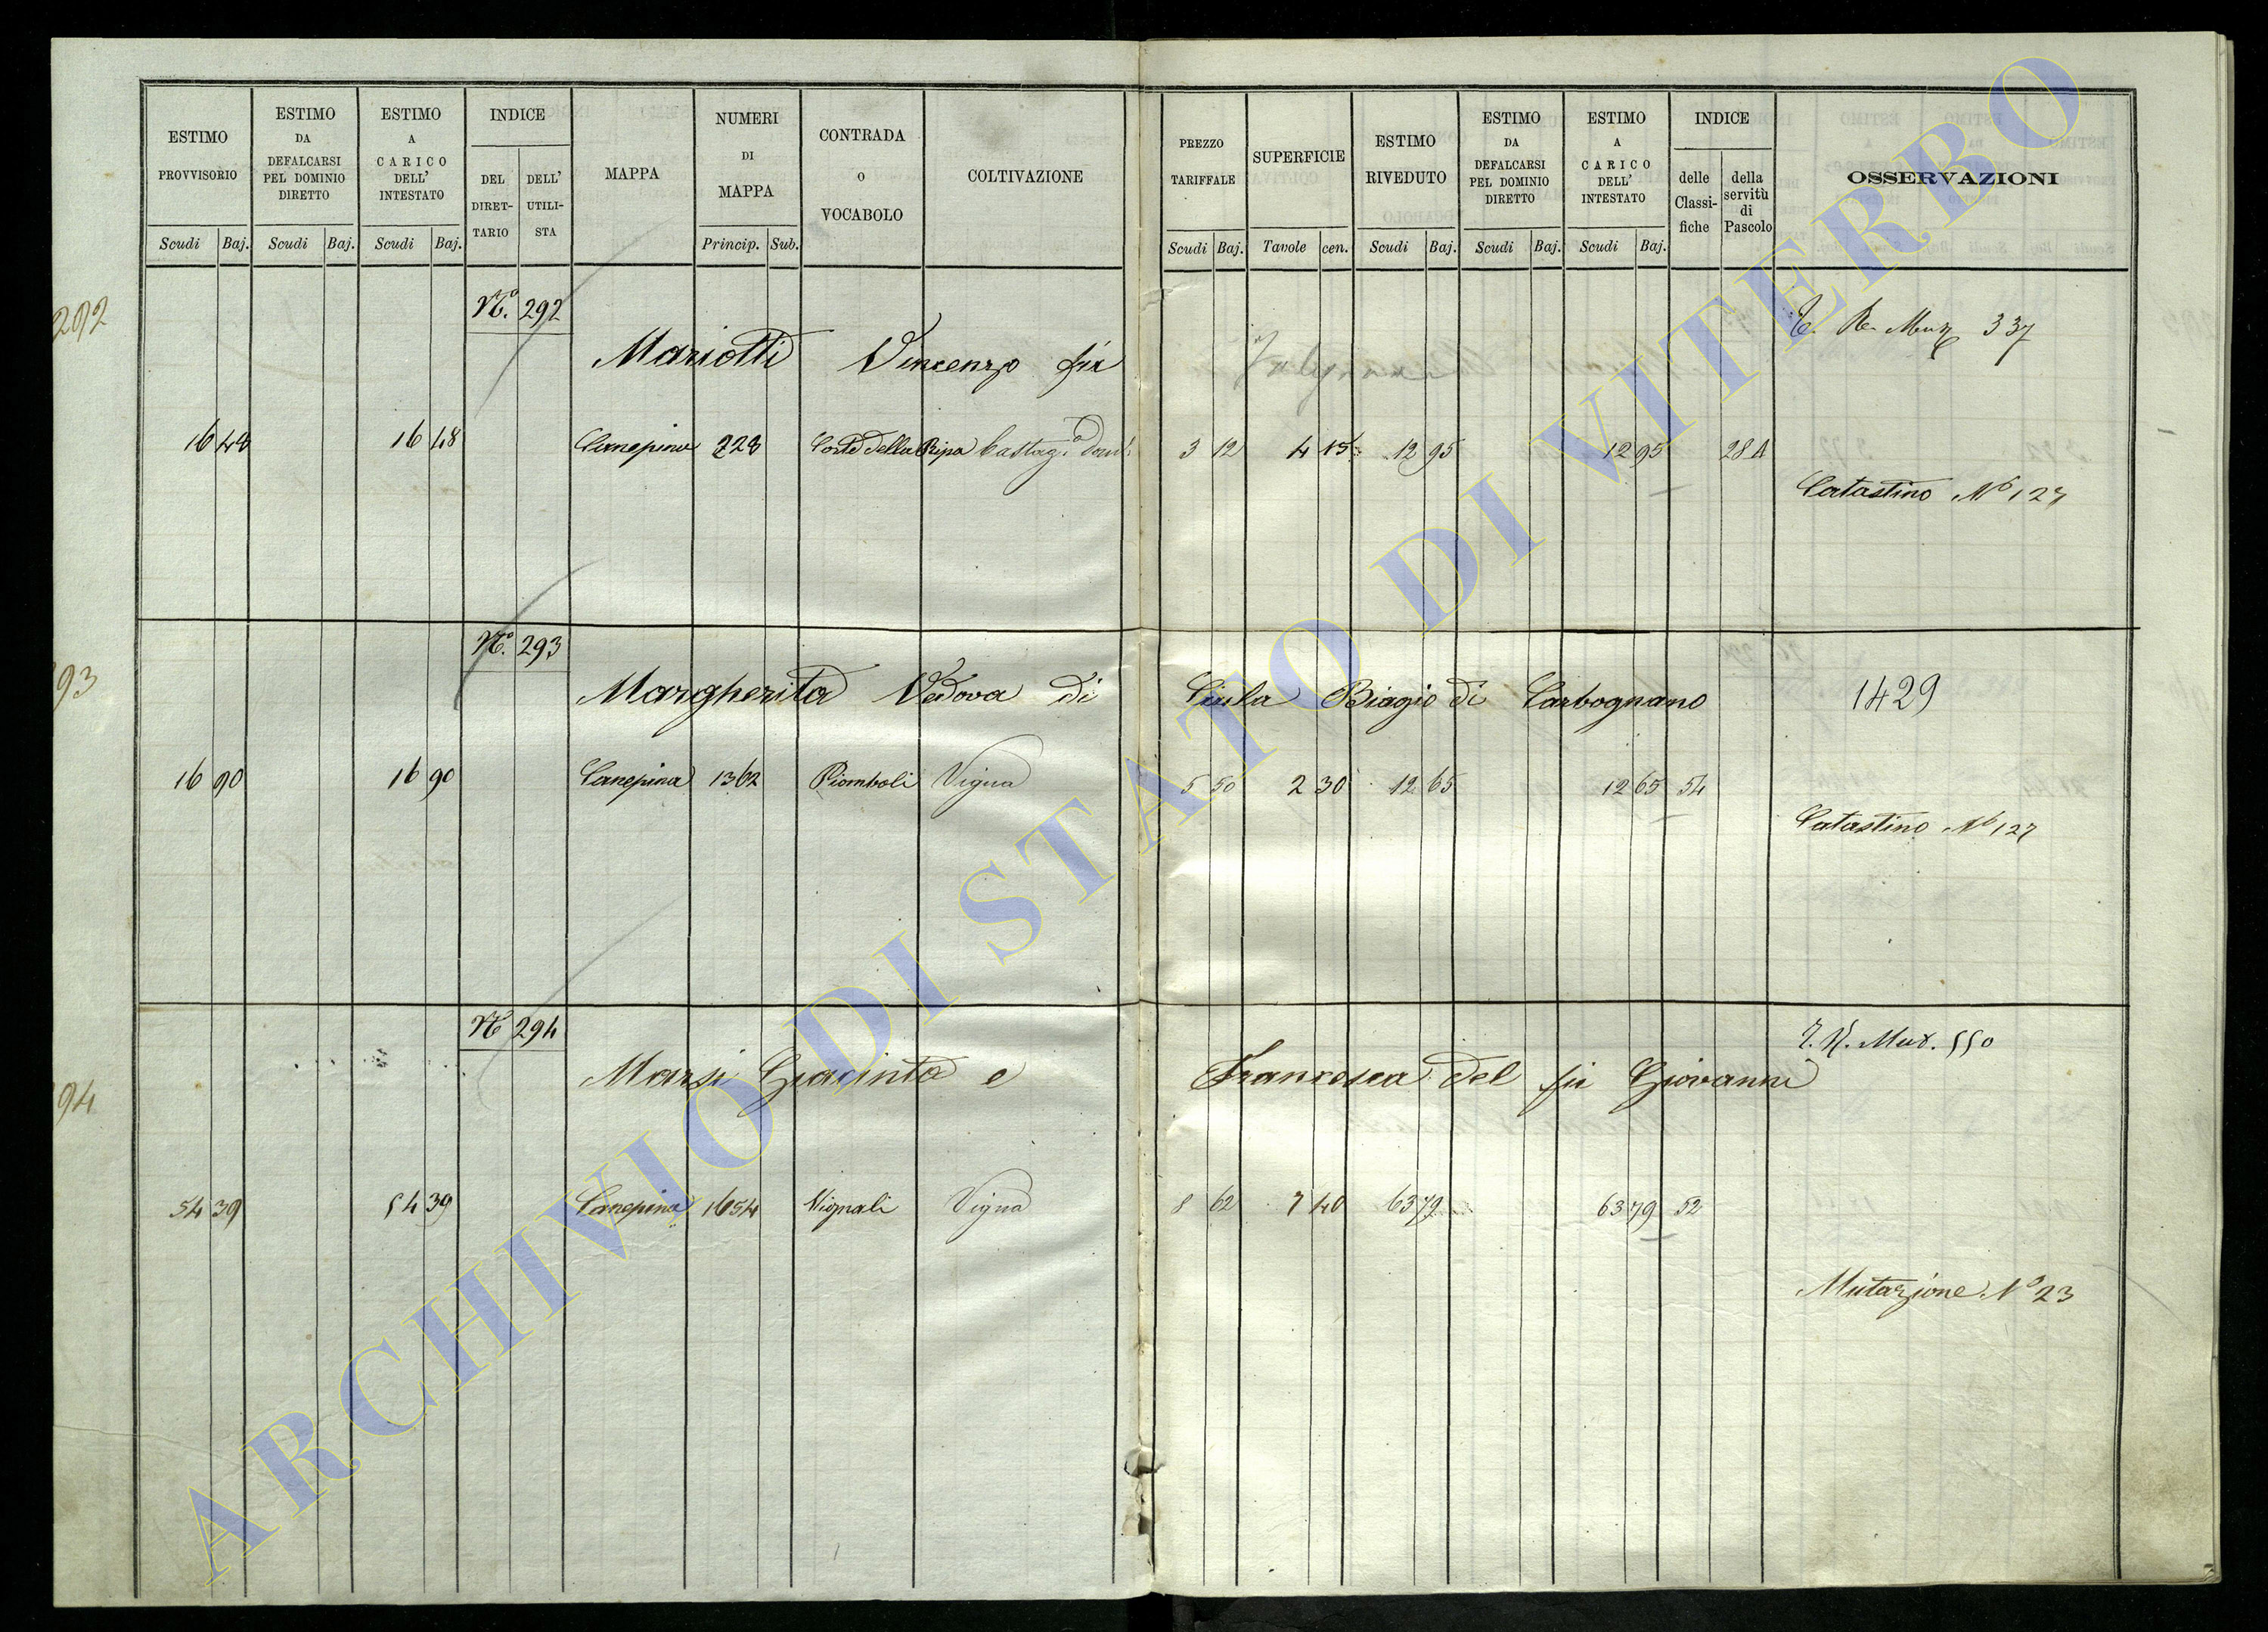 ESTIMO PROVVISORIO Scudi Baj.
ESTIMO DA DEFALCARSI PEL DOMINIO DIRETTO Scudi Baj.
ESTIMO A CARICO DELL' INTESTATO Scudi Baj.
INDICE DEL DIRET- TARIO DELL' UTILI- STA
MAPPA
NUMERI DI MAPPA Princip. Sub.
CONTRADA O VOCABOLO
COLTIVAZIONE
PREZZO TARIFFALE Scudi Baj.
SUPERFICIE Tavole cen.
ESTIMO RIVEDUTO Scudi Baj.
ESTIMO DA DEFALCARSI PEL DOMINIO DIRETTO Scudi Baj.
ESTIMO A CARICO DELL' INTESTATO Scudi Baj.
INDICE delle Classi- fiche della servitù di Pascolo
OSSERVAZIONI
292
N.º 292
Mariotti Vincenzo fu
337
16 48 16 48 Canepina 228 Coste della Ripa Castag.º 3 12 4 15 12 95 12 95 28 A
Catastino Nº 127
93
N.º 293
Margherita Vedova di Biagio di Carbognano 1429
16 90 16 90 Canepina 1362 Piomboli Vigna 5 50 2 30 12 65 12 65 54
Catastino Nº 127
94
Nº 294
Marsi Giacinta e Francesca del fu Giovanni
550
54 39 54 39 Canepina 1654 Vignali Vigna 8 62 7 40 63 79 63 79 52
Mutazione Nº 23
ARCHIVIO DI STATO DI VITERBO